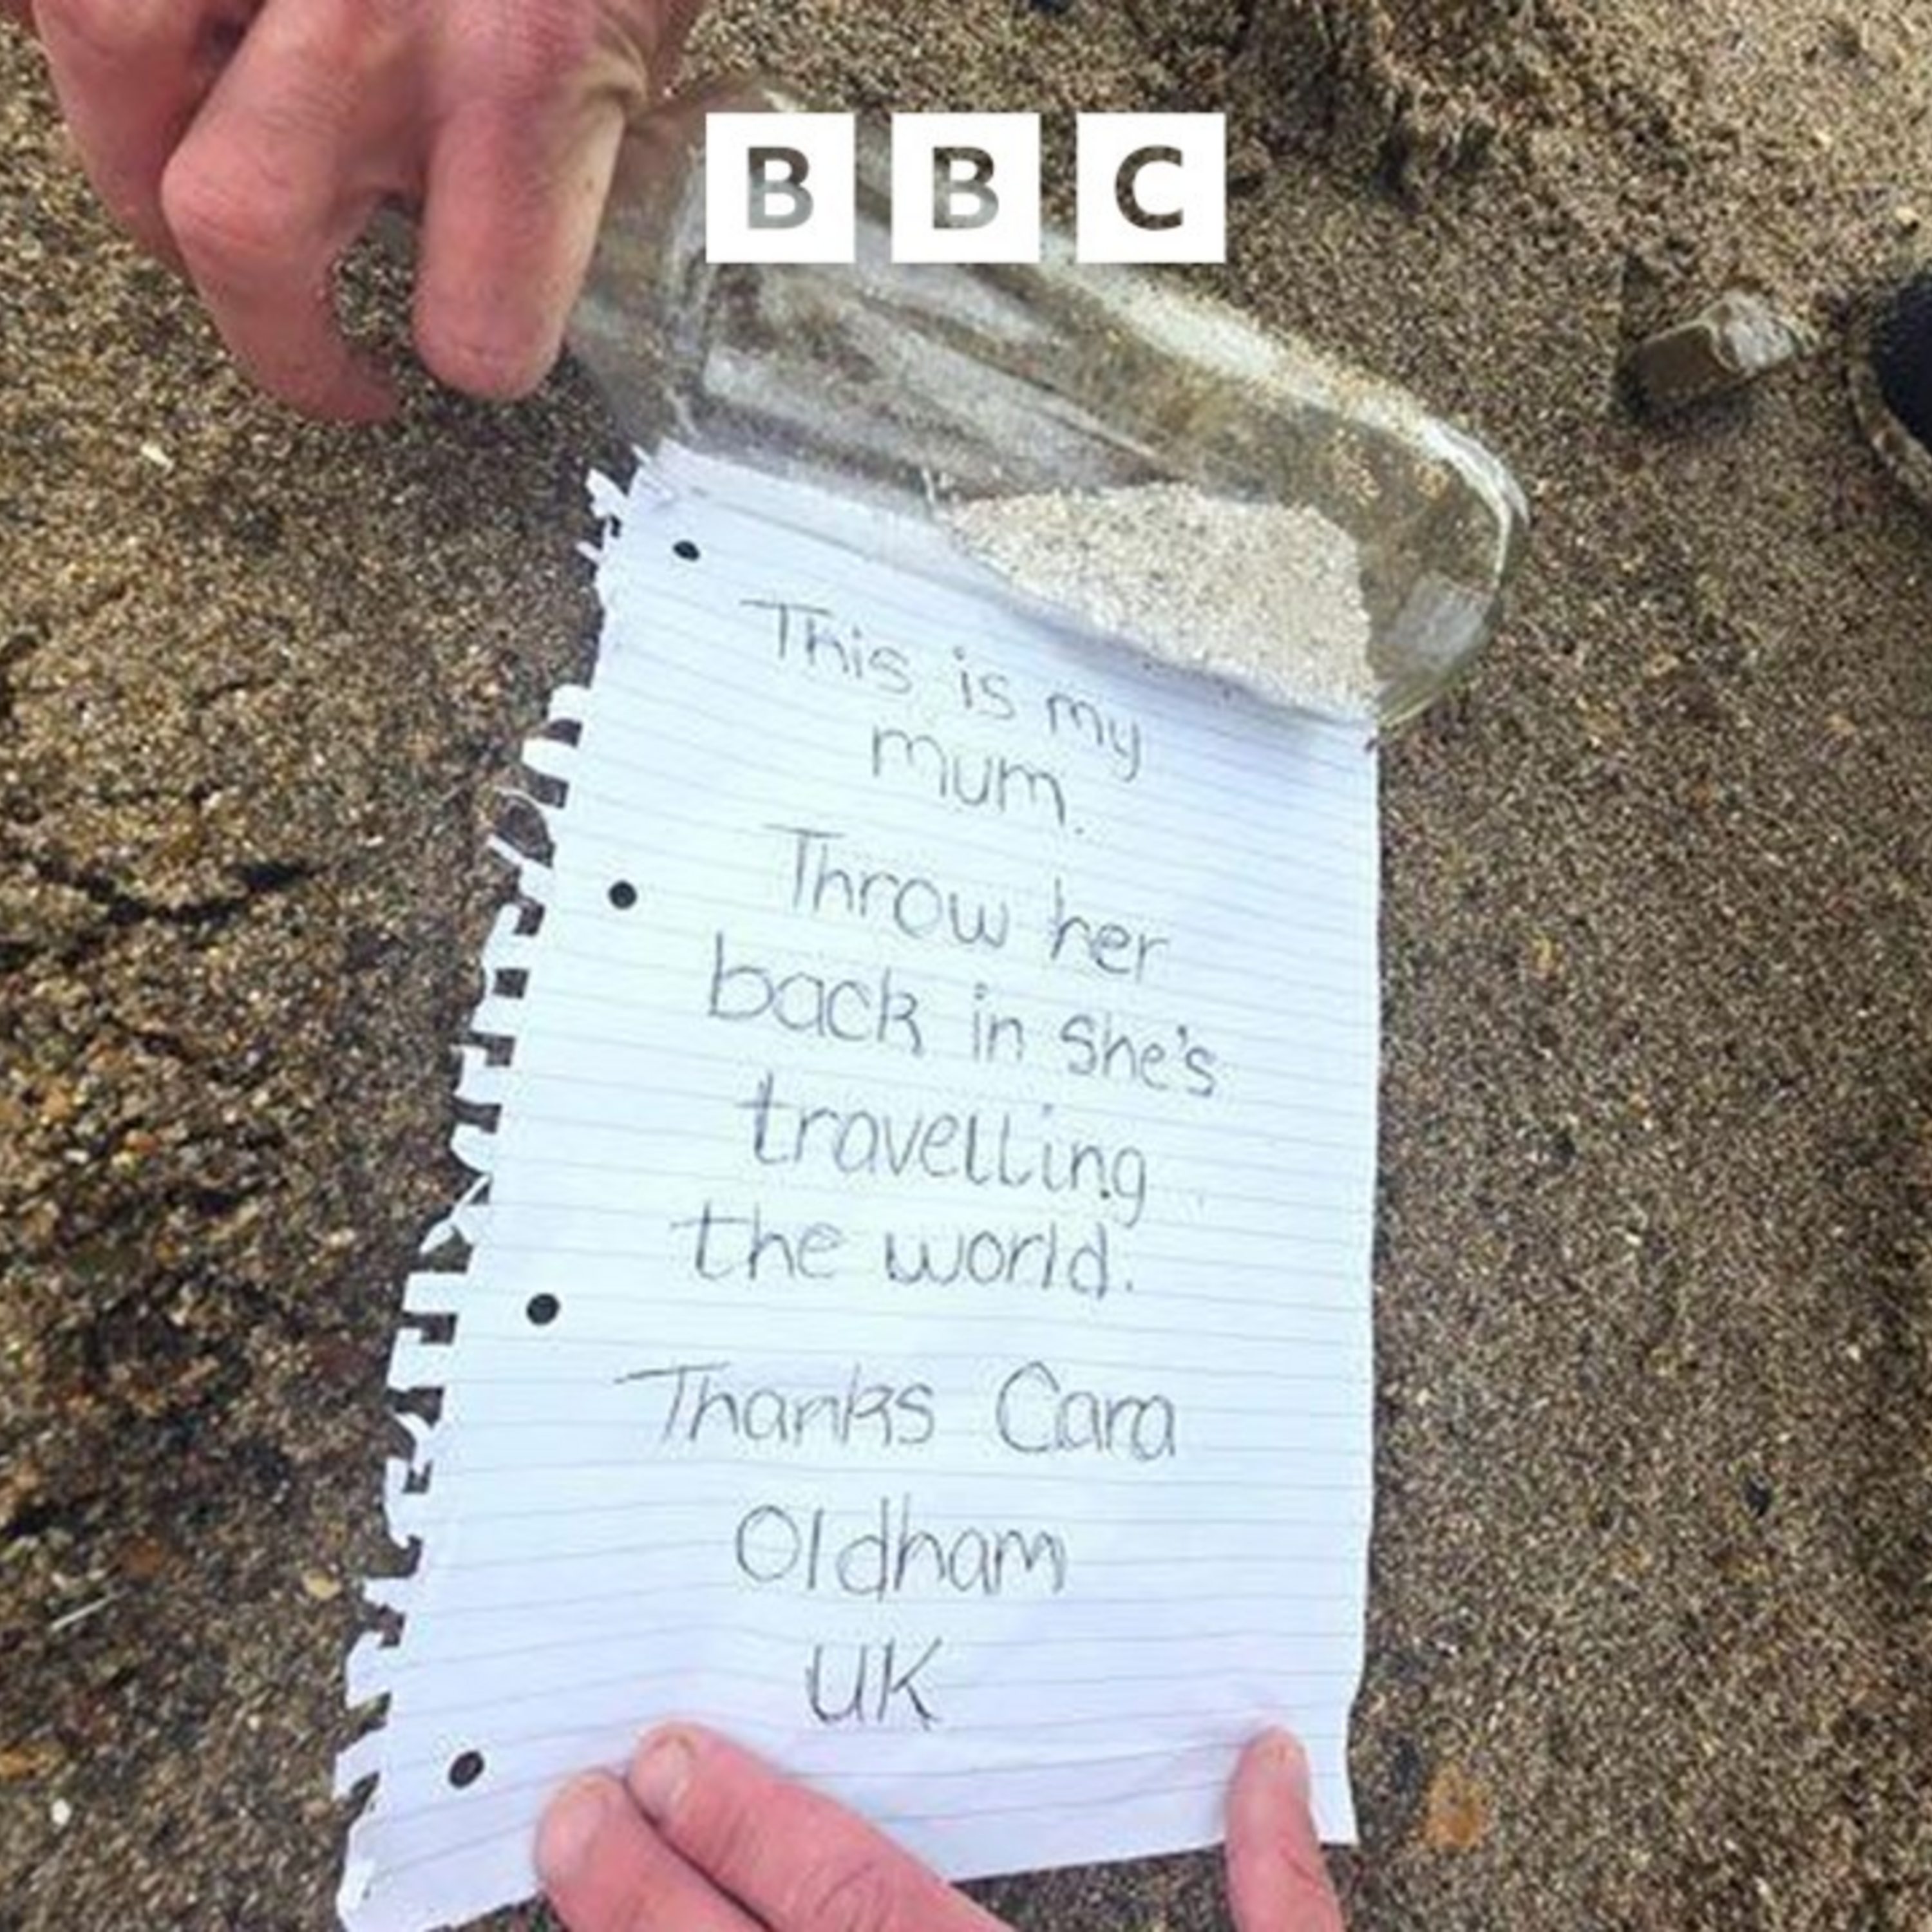 BBC
This is my
mum.
Throw her
back in She's
travelling
the world.
Thanks Cara
Oldham
UK